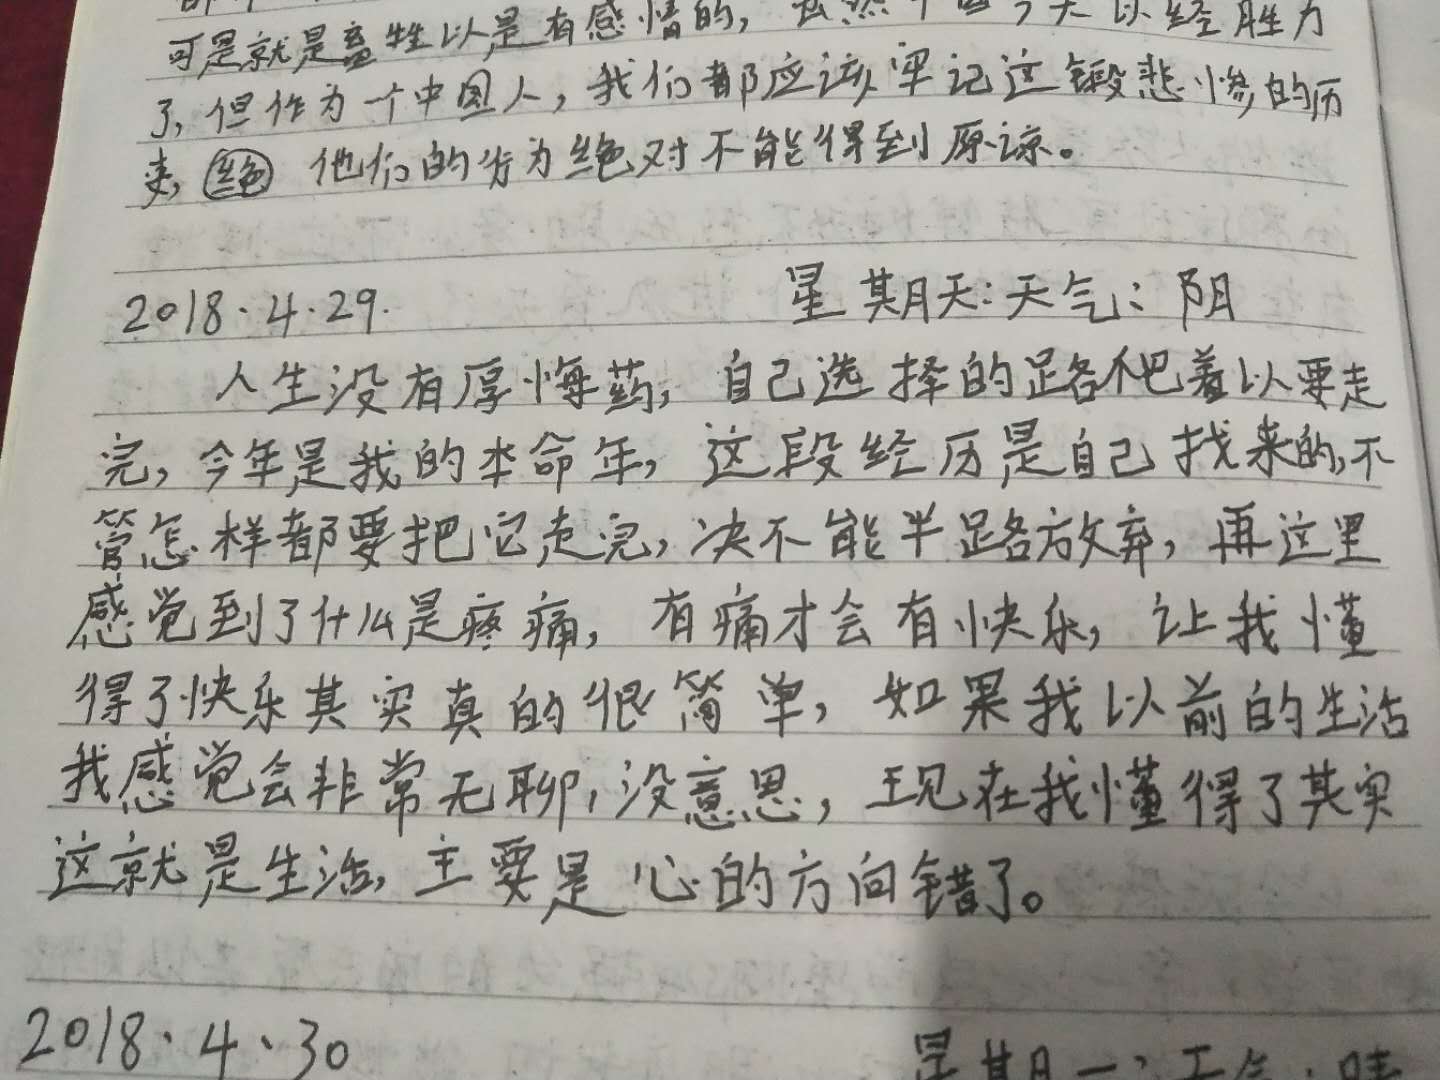 可是就是畜牲以是有感情的，虽然中国今天以经胜力
了，但作为一个中国人，我们都应该牢记这锻悲惨的历
来，绝 他们的行为绝对不能得到原谅。
2018.4.29. 星期天:天气:阴
人生没有厚悔药，自己选择的路爬着以要走
完，今年是我的本命年，这段经历是自己找来的，不
管怎样都要把它走完，决不能半路放弃，再这里
感觉到了什么是疼痛，有痛才会有快乐，让我懂
得了快乐其实真的很简单，如果我以前的生活
我感觉会非常无聊，没意思，现在我懂得了其实
这就是生活，主要是心的方向错了。
2018.4.30 星期一:天气:晴